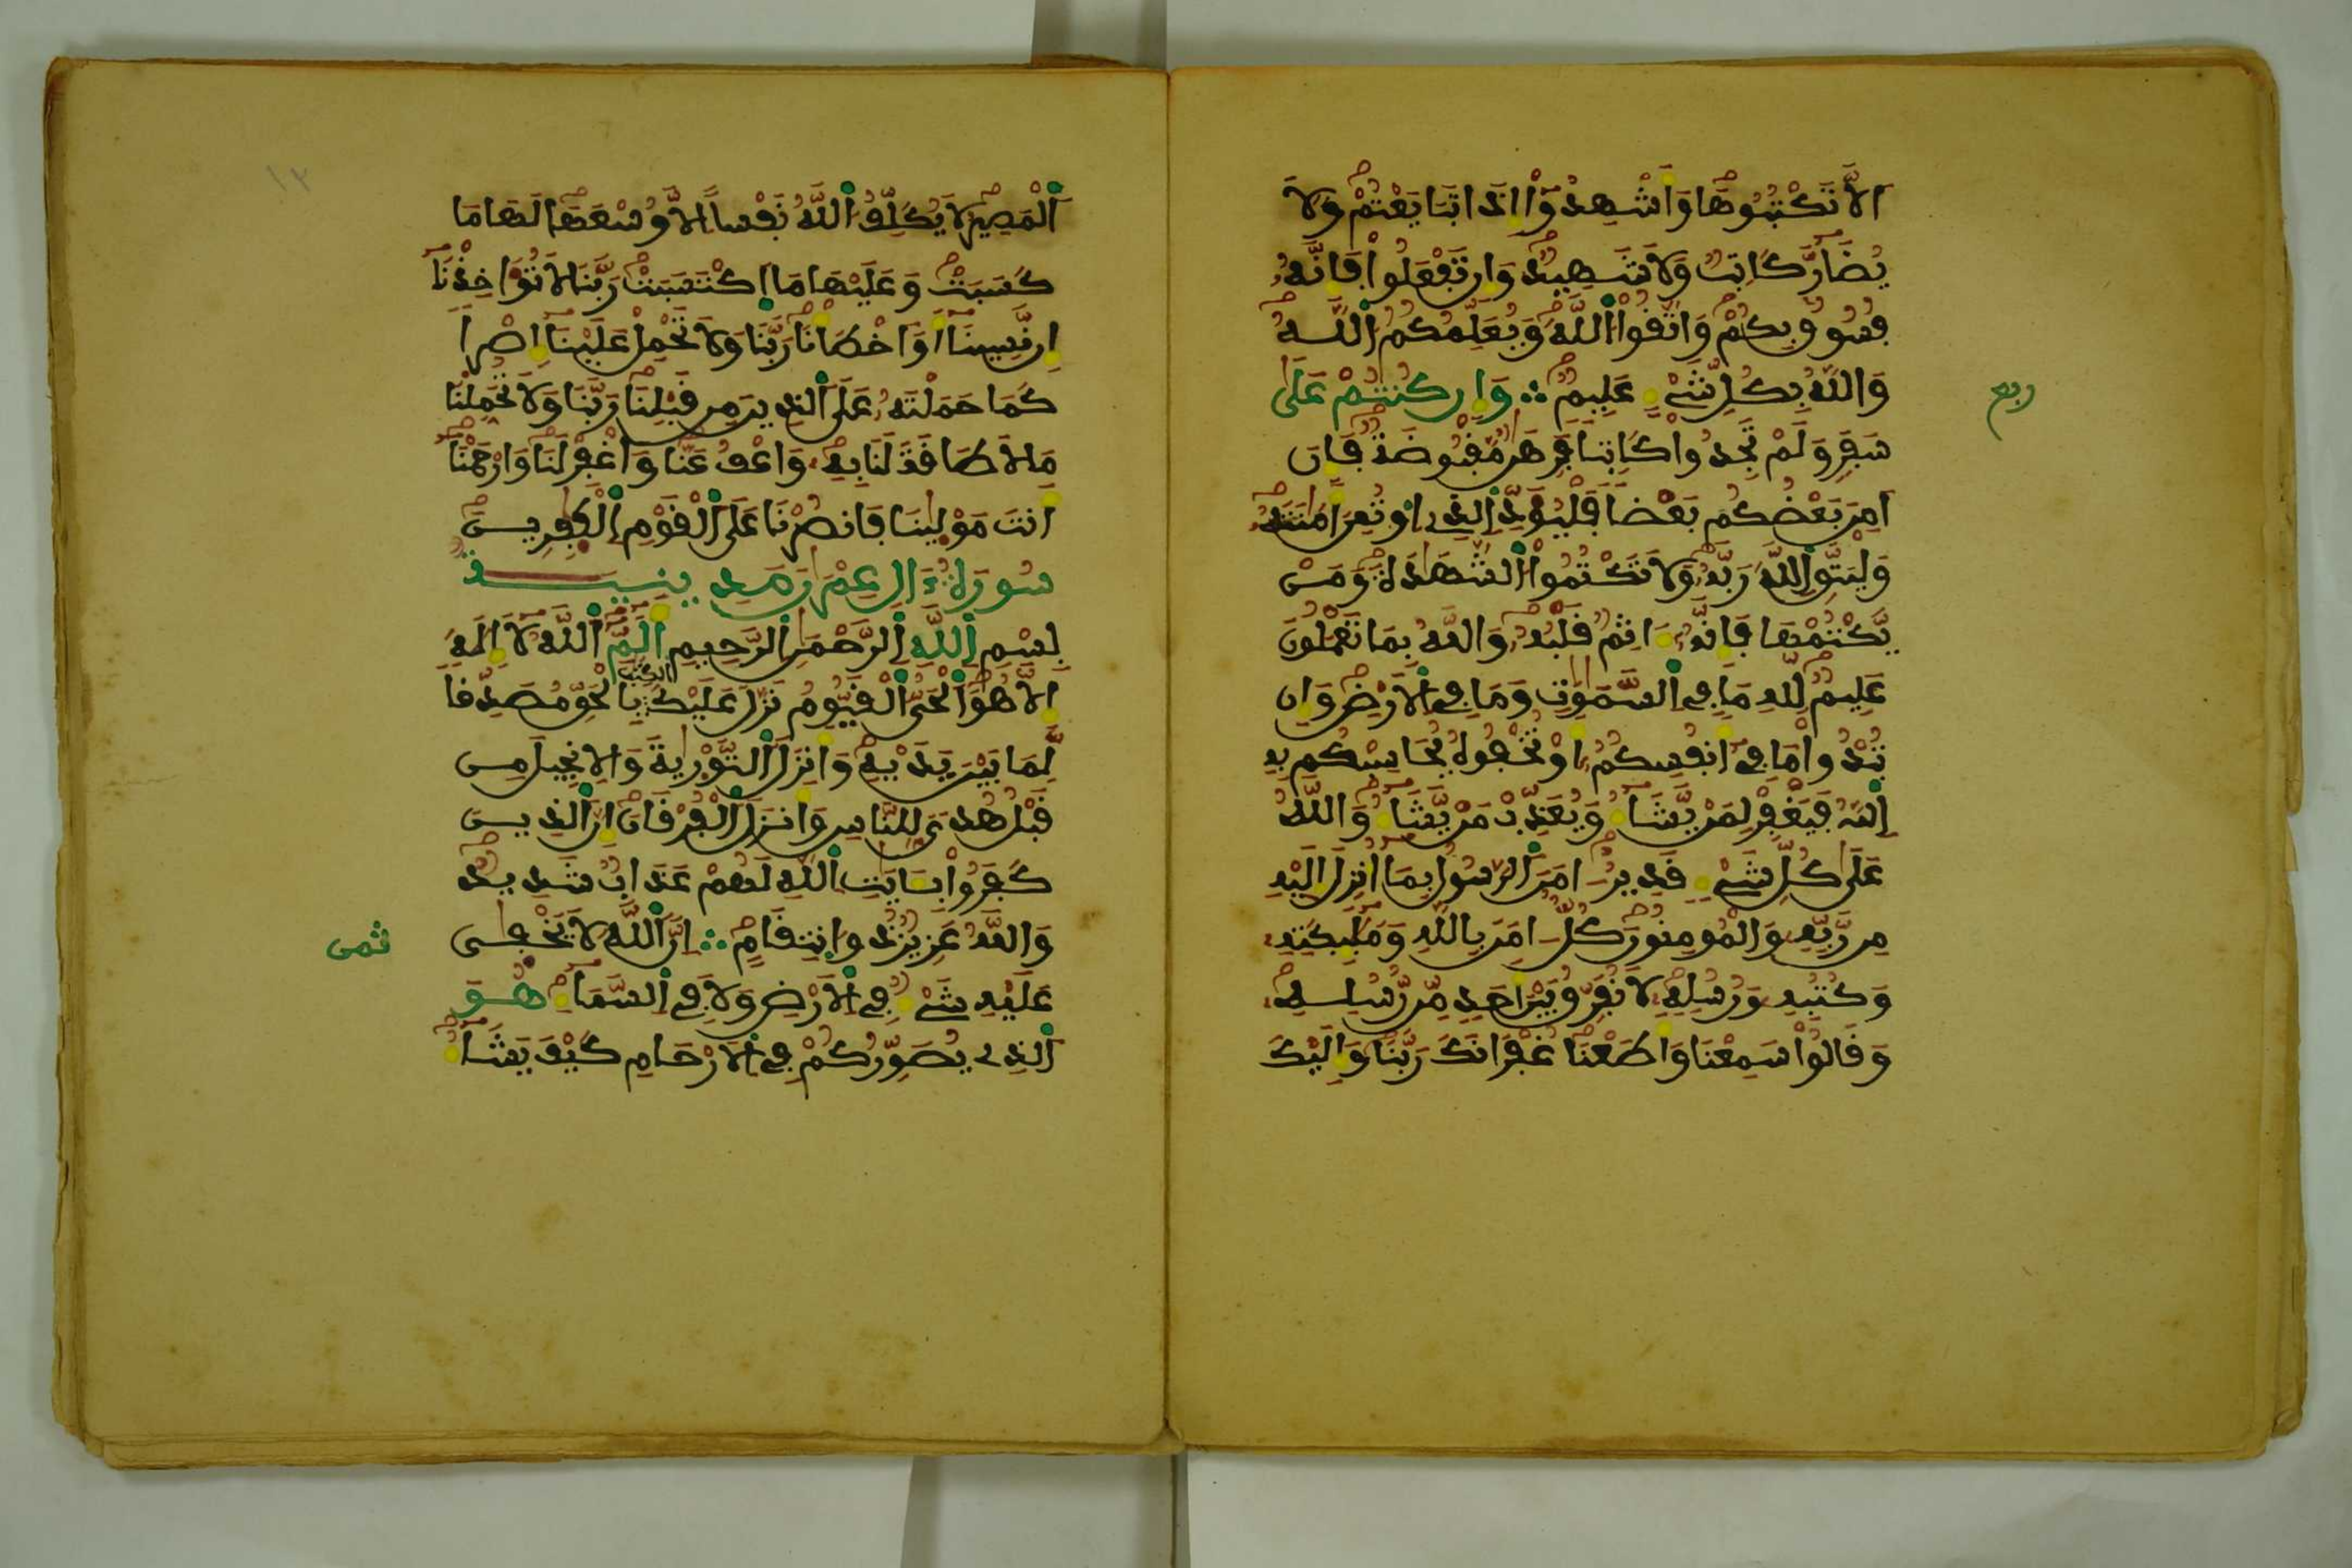 اَلَّا تَكْتُبُوهَا وَأَشْهِدُوٓاْ إِذَا تَبَايَعْتُمْ وَلَا
يُضَآرَّ كَاتِبٌ وَلَا شَهِيدٌ وَإِن تَفْعَلُواْ فَإِنَّهُۥ
فُسُوقٌۢ بِكُمْ وَاتَّقُواْ اللَّهَ وَيُعَلِّمُكُمُ اللَّهُ
وَاللَّهُ بِكُلِّ شَيْءٍ عَلِيمٌ ∴ وَإِن كُنتُمْ عَلَىٰ
ربع
سَفَرٍ وَلَمْ تَجِدُواْ كَاتِبًا فَرِهَٰنٌ مَّقْبُوضَةٌ فَإِنْ
أَمِنَ بَعْضُكُم بَعْضًا فَلْيُؤَدِّ الذِي اوْتُمِنَ أَمَٰنَتَهُۥ
وَلْيَتَّقِ اللَّهَ رَبَّهُۥ وَلَا تَكْتُمُواْ الشَّهَٰدَةَ وَمَنْ
يَّكْتُمْهَا فَإِنَّهُۥٓ ءَاثِمٌ قَلْبُهُۥ وَاللَّهُ بِمَا تَعْمَلُونَ
عَلِيمٌ لِّلهِ مَا فِي السَّمَٰوَٰتِ وَمَا فِي الْأَرْضِ وَإِن
تُبْدُواْ مَا فِيٓ أَنفُسِكُمُۥٓ أَوْ تُخْفُوهُ يُحَاسِبْكُم بِهِ
اللَّهُ فَيَغْفِرْ لِمَنْ يَّشَآءُ وَيُعَذِّبْ مَنْ يَّشَآءُ وَاللَّهُ
عَلَىٰ كُلِّ شَيْءٍ قَدِيرٌ ءَامَنَ الرَّسُولُ بِمَآ أُنزِلَ إِلَيْهِ
مِن رَّبِّهِۦ وَالْمُومِنُونَ كُلٌّ ءَامَنَ بِاللَّهِ وَمَلَٰٓئِكَتِهِۦ
وَكُتُبِهِۦ وَرُسُلِهِۦ لَا نُفَرِّقُ بَيْنَ أَحَدٍ مِّن رُّسُلِهِۦ
وَقَالُواْ سَمِعْنَا وَأَطَعْنَا غُفْرَانَكَ رَبَّنَا وَإِلَيْكَ
١٢
اَلْمَصِيرُ لَا يُكَلِّفُ اللَّهُ نَفْسًا إِلَّا وُسْعَهَا لَهَا مَا
كَسَبَتْ وَعَلَيْهَا مَا اكْتَسَبَتْ رَبَّنَا لَا تُوَاخِذْنَآ
إِن نَّسِينَآ أَوَ اَخْطَأْنَا رَبَّنَا وَلَا تَحْمِلْ عَلَيْنَآ إِصْرًا
كَمَا حَمَلْتَهُۥ عَلَى الذِينَ مِن قَبْلِنَا رَبَّنَا وَلَا تُحَمِّلْنَا
مَا لَا طَاقَةَ لَنَا بِهِۦ وَاعْفُ عَنَّا وَاغْفِرْ لَنَا وَارْحَمْنَآ
أَنتَ مَوْلَىٰنَا فَانصُرْنَا عَلَى الْقَوْمِ الْكَٰفِرِينَ
سُورَةُ ءَالِ عِمْرَٰنَ مَدِينِيَّة
بِسْمِ اللَّهِ الرَّحْمَٰنِ الرَّحِيمِ الٓمِّٓ اللَّهُ لَآ إِلَٰهَ
إِلَّا هُوَ الْحَىُّ الْقَيُّومُ نَزَّلَ عَلَيْكَ الْكِتَٰبَ بِالْحَقِّ مُصَدِّقًا
لِّمَا بَيْنَ يَدَيْهِ وَأَنزَلَ التَّوْرَىٰةَ وَالْإِنجِيلَ مِن
قَبْلُ هُدًى لِّلنَّاسِ وَأَنزَلَ الْفُرْقَانَ إِنَّ الذِينَ
كَفَرُواْ بِـَٔايَٰتِ اللَّهِ لَهُمْ عَذَابٌ شَدِيدٌ
وَاللَّهُ عَزِيزٌ ذُو انتِقَامٍ ∴ إِنَّ اللَّهَ لَا يَخْفَىٰ
ثمن
عَلَيْهِ شَيْءٌ فِي الْأَرْضِ وَلَا فِي السَّمَآءِ هُوَ
الذِي يُصَوِّرُكُمْ فِي الْأَرْحَامِ كَيْفَ يَشَآءُ